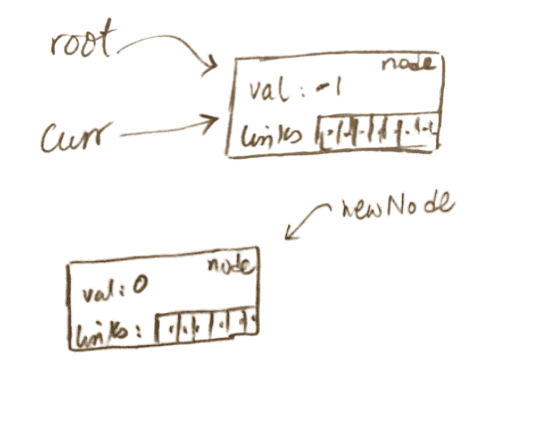 root
node
val : -1
Curr
links
newNode
node
val: 0
links: